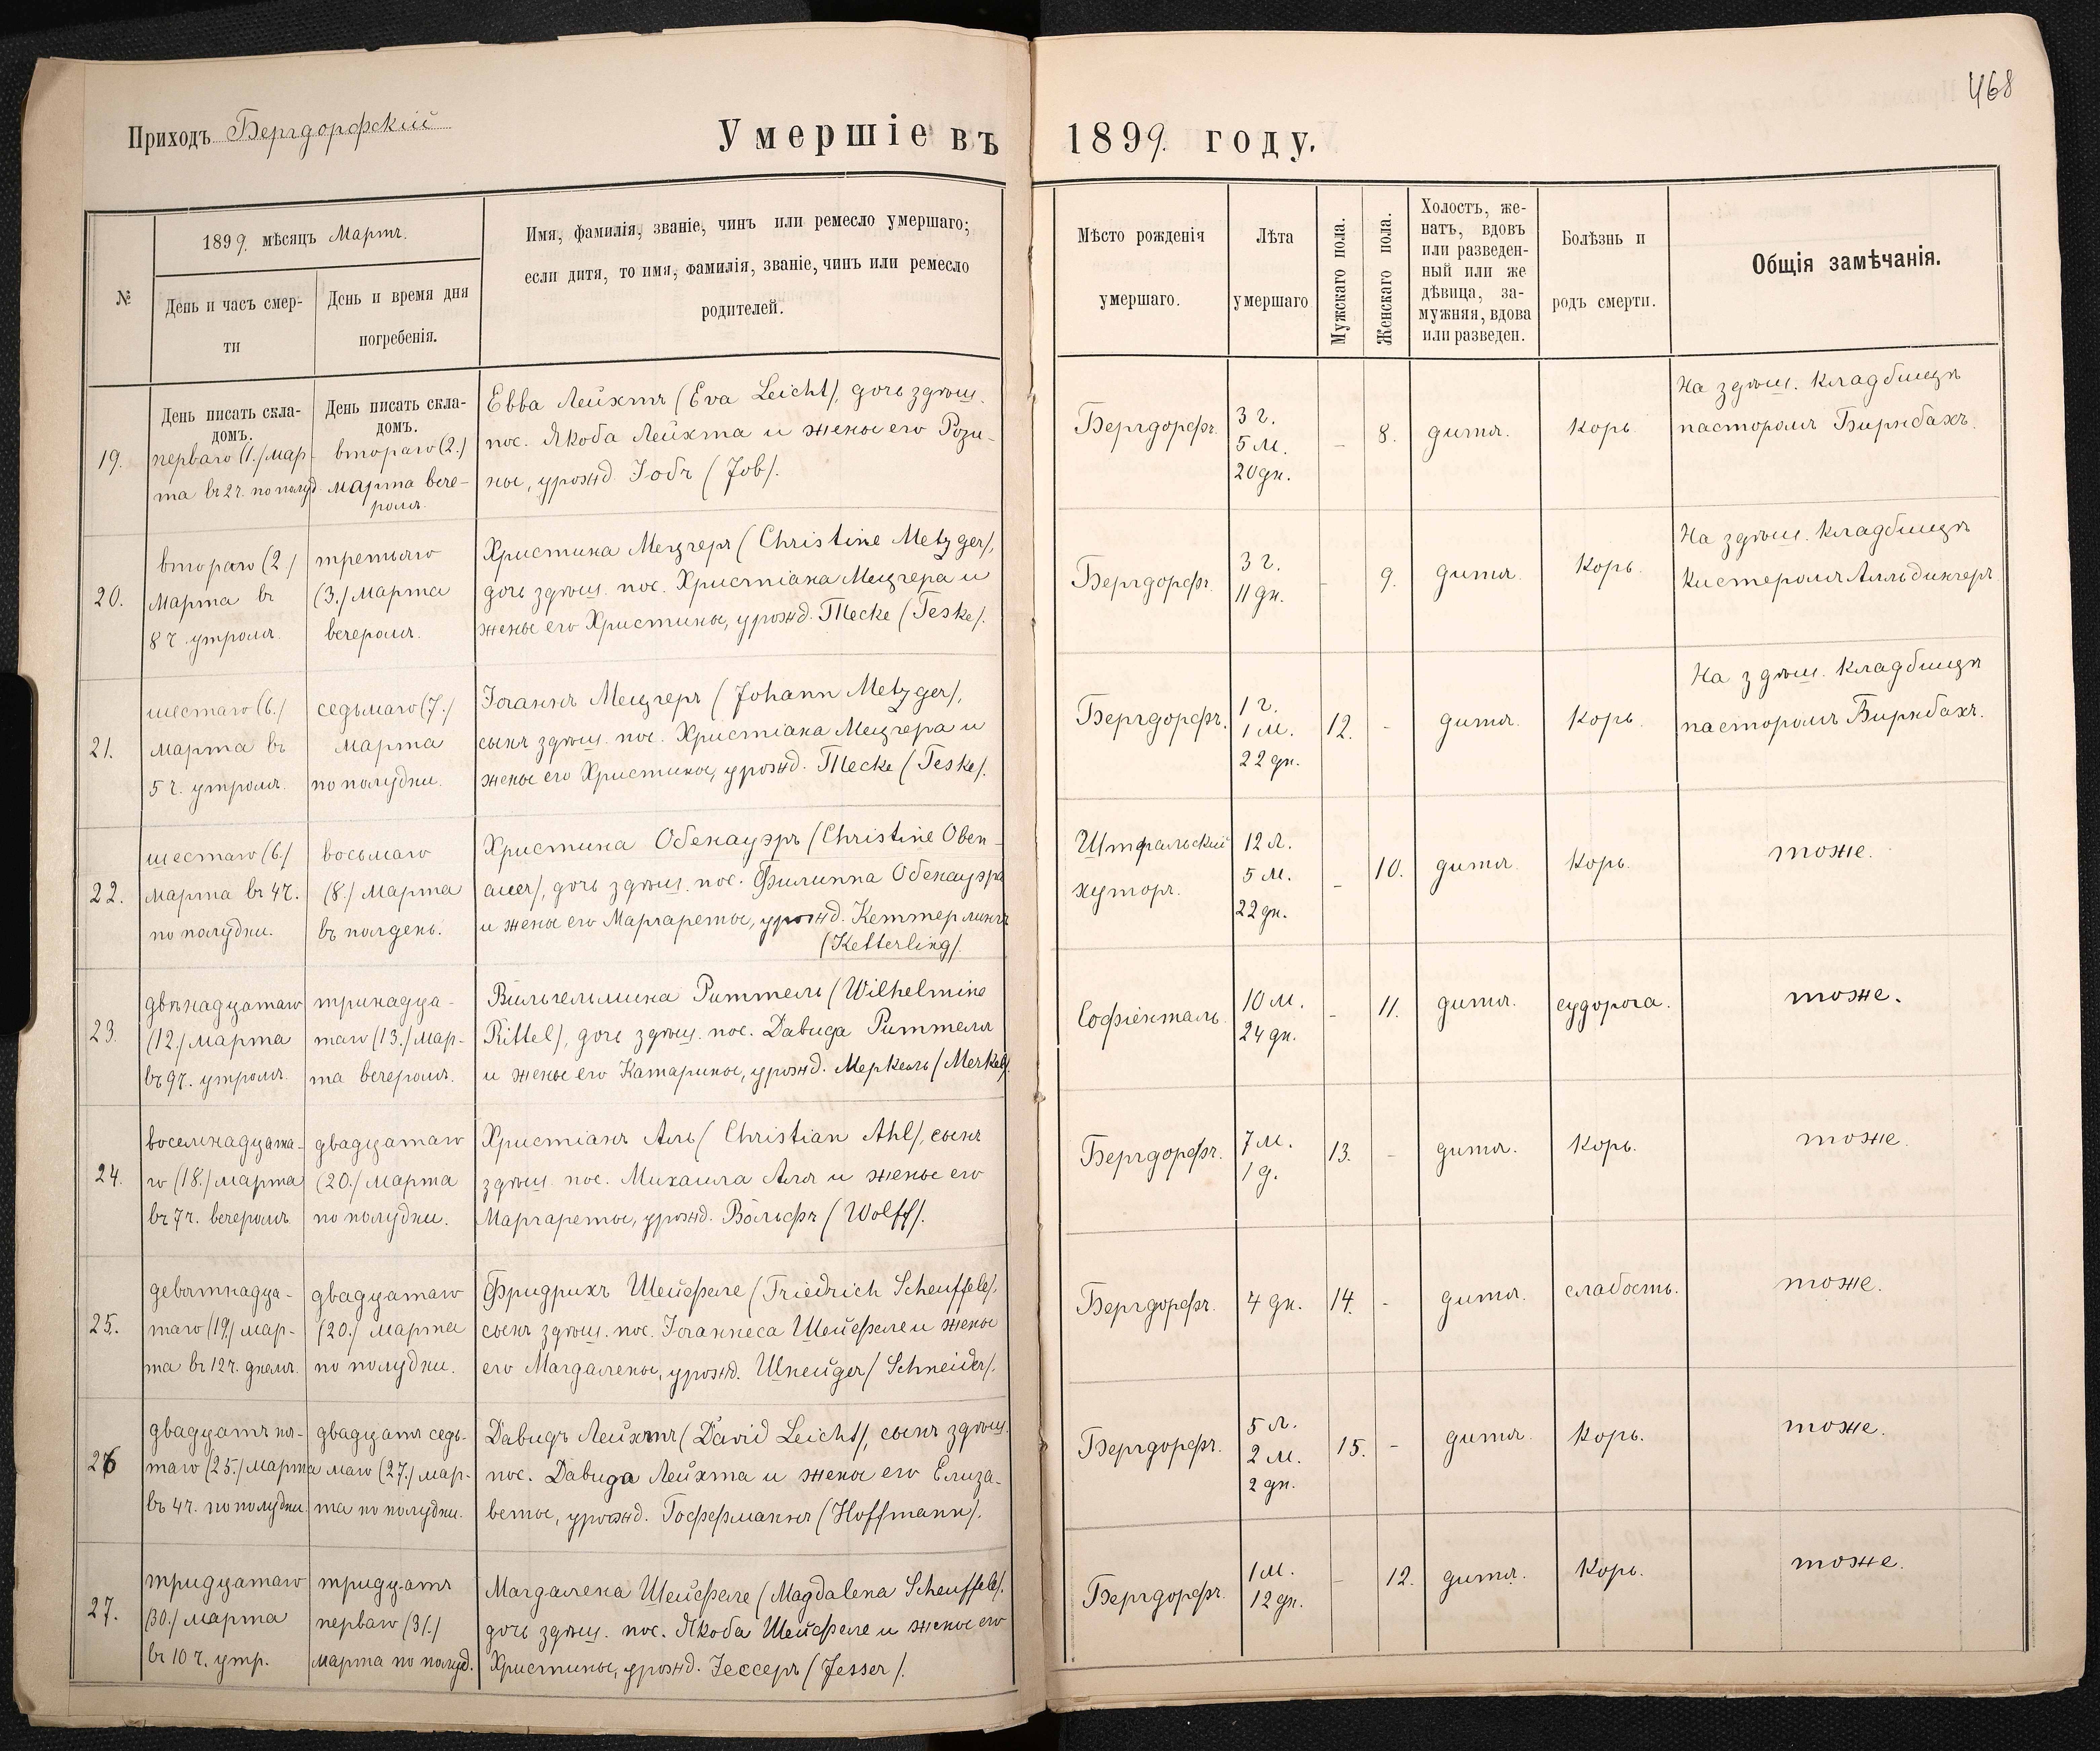 468
Приходъ Бергдорфскій
Умершіе въ 1899. году.
№
1899. мѣсяцъ Мартъ.
День и часъ смер-
ти
День и время дня
погребенія.
Имя, фамилія, званіе, чинъ или ремесло умершаго;
если дитя, то имя, фамилія, званіе, чинъ или ремесло
родителей.
Мѣсто рожденія
умершаго.
Лѣта
умершаго
Мужскаго пола.
Женскаго пола.
Холостъ, же-
натъ, вдовъ
или разведен-
ный или же
дѣвица, за-
мужняя, вдова
или разведен.
Болѣзнь и
родъ смерти.
Общія замѣчанія.
День писать скла-
домъ.
День писать скла-
домъ.
19.
перваго (1.) мар-
та въ 2 ч. по полуд
втораго (2.)
марта вече-
ромъ.
Евва Лейхтъ (Eva Leicht), дочь здѣш.
пос. Якоба Лейхта и жены его Рози-
ны, урожд. Іобъ (Job).
Бергдорфъ.
3 г.
5 м.
20 дн.
-
8.
дитя.
корь.
На здѣш. кладбищѣ
пасторомъ Бирнбахъ.
20.
втораго (2.)
марта въ
8 ч. утромъ.
третьяго
(3.) марта
вечеромъ.
Христина Мецгеръ (Christine Metzger),
дочь здѣш. пос. Христіана Мецгера и
жены его Христины, урожд. Теске (Teske).
Бергдорфъ.
3 г.
11 дн.
-
9.
дитя.
корь.
На здѣш. кладбищѣ
кистеромъ Алльдингеръ.
21.
шестаго (6.)
марта въ
5 ч. утромъ.
седьмаго (7.)
марта
по полудни.
Іоганнъ Мецгеръ (Johann Metzger),
сынъ здѣш. пос. Христіана Мецгера и
жены его Христины, урожд. Теске (Teske).
Бергдорфъ.
1 г.
1 м.
22 дн.
12.
-
дитя.
корь.
На здѣш. кладбищѣ
пасторомъ Бирнбахъ.
22.
шестаго (6.)
марта въ 4 ч.
по полудни.
восьмаго
(8.) марта
въ полдень.
Христина Обенауэръ (Christine Oben-
auer), дочь здѣш. пос. Филиппа Обенауэра
и жены его Маргареты, урожд. Кеттерлингъ
(Ketterling).
хуторъ.
12 л.
5 м.
22 дн.
-
10.
дитя.
корь.
тоже.
23.
двѣнадцатаго
(12.) марта
въ 9 ч. утромъ.
тринадца-
таго (13.) мар-
та вечеромъ.
Вильгельмина Риттель (Wilhelmine
Rittel), дочь здѣш. пос. Давида Риттеля
и жены его Катарины, урожд. Меркель (Merkel).
Софіенталь
10 м.
24 дн.
-
11.
дитя.
судорога.
тоже.
24.
восемнадцата-
го (18.) марта
въ 7 ч. вечеромъ.
двадцатаго
(20.) марта
по полудни.
Христіанъ Аль (Christian Ahl), сынъ
здѣш. пос. Михаила Аля и жены его
Маргареты, урожд. Вольфъ (Wolff).
Бергдорфъ.
7 м.
1 д.
13.
-
дитя.
корь.
тоже.
25.
девятнадца-
таго (19.) мар-
та въ 12 ч. днемъ.
двадцатаго
(20.) марта
по полудни.
Фридрихъ Шейфеле (Friedrich Scheuffele),
сынъ здѣш. пос. Іоганнеса Шейфеле и жены
его Магдалены, урожд. Шнейдеr (Schneider).
Бергдорфъ.
4 дн.
14.
-
дитя.
слабость.
тоже.
26
двадцать пя-
таго (25.) марта
въ 4 ч. по полудни.
двадцать седь-
маго (27.) мар-
та по полудни.
Давидъ Лейхтъ (David Leicht), сынъ здѣш.
пос. Давида Лейхта и жены его Елиза-
веты, урожд. Гоффманнъ (Hoffmann).
Бергдорфъ.
5 л.
2 м.
2 дн.
15.
-
дитя.
корь.
тоже.
27.
тридцатаго
(30.) марта
въ 10 ч. утр.
тридцать
перваго (31.)
марта по полуд.
Магдалена Шейфеле (Magdalena Scheuffele),
дочь здѣш. пос. Якоба Шейфеле и жены его
Христины, урожд. Іессеръ (Jesser).
Бергдорфъ.
1 м.
12 дн.
-
12.
дитя.
корь.
тоже.